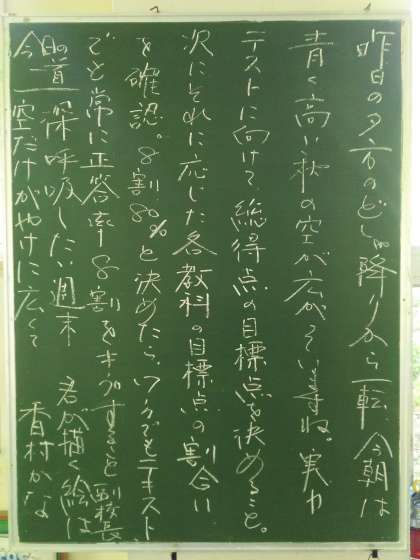 昨日の夕方のどしゃ降りから一転、今朝は
青く高い秋の空が広がっていますね。実力
テストに向けて、総得点の目標点を決めること。
次にそれに応じた各教科の目標点の割合い
を確認。8割80%と決めたら、ワークでもテキスト
でも常に正答率8割をキープすること 副校長
今日の一首
深呼吸したい週末 君が描く絵は
空だけがやけに広くて 香村かな